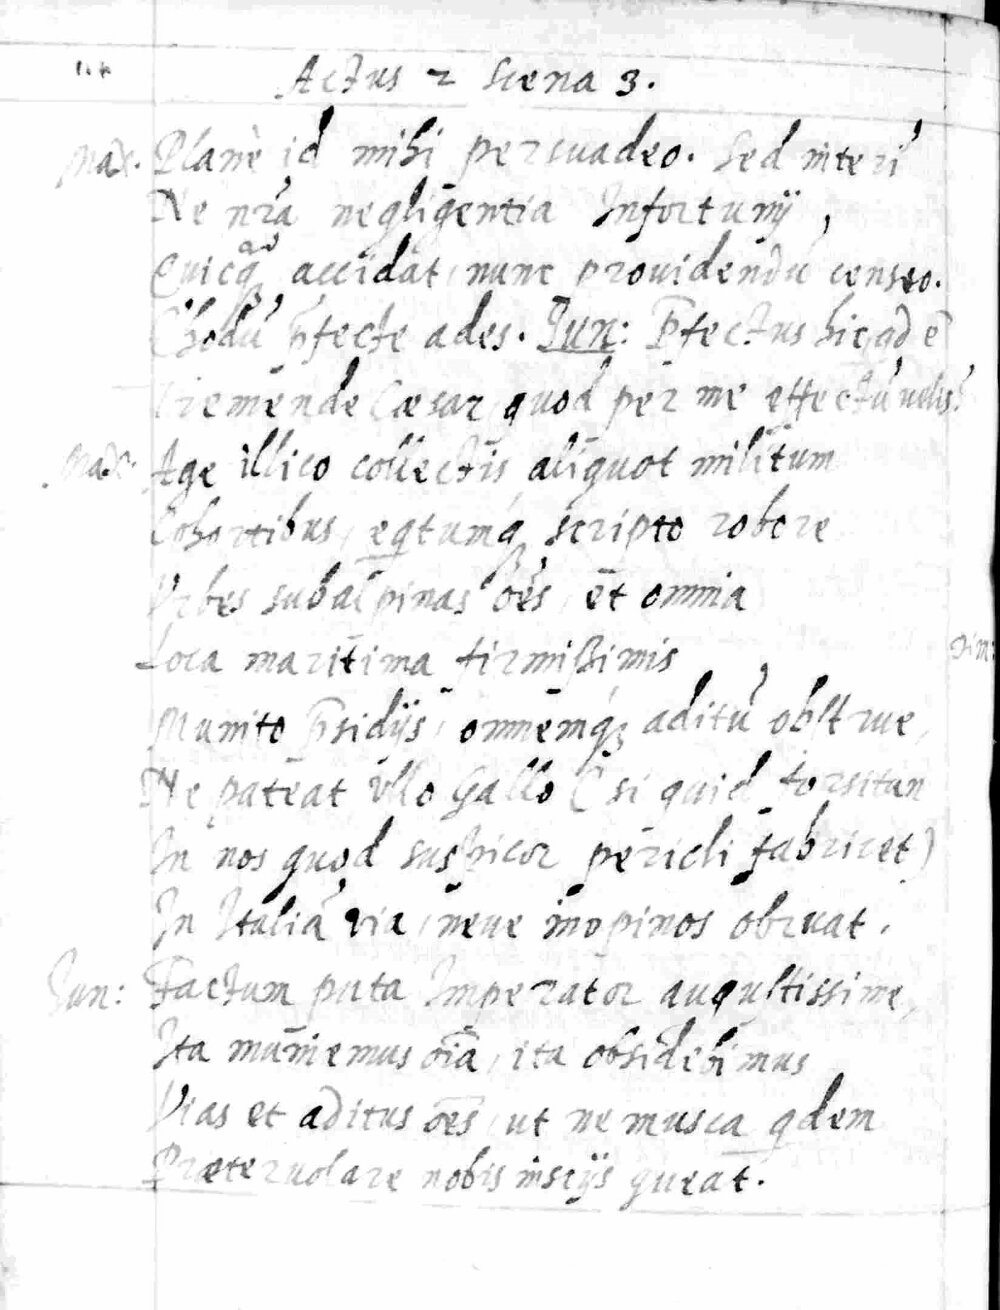 Actus 2 Scena 3.
Max. Planè id mihi persuadeo. Sed interī
Ne nrā negligentia Infortunij,
Cuicq̃ accidat, nunc prouidendū censeo.
Chodū p̄fecte ades. Jun: P̄fectus hic adē
Tremende Cæsar, quod per me effectū uelis?
Max: Age illico collectis aliquot militum
Cohortibus, eqtumq; scripto robore
Vrbes subalpinas oēs, et omnia
Loca maritima firmißimis
Munito p̄sidijs, omnemq; aditū obstrue,
Ne pateat vllo Gallo (si quid forsitan
In nos quod suspicor pericli fabricet)
In Italiā via, neue inopinos obruat.
Jun: Factum puta Imperator augustissime,
Ita muniemus oīa, ita obsidebimus
Vias et aditus oēs, ut ne musca qdem
Præteruolare nobis inscijs queat.